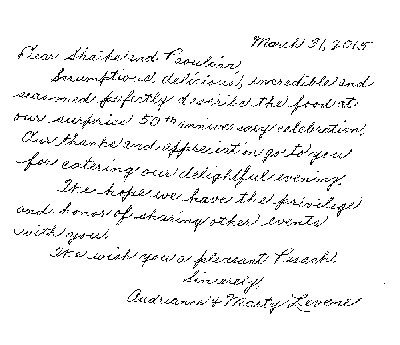 March 31, 2015
Dear Shake and Paouline,
Scrumptious, delicious, incredible and
seasoned perfectly describe the food at
our surprise 50th anniversary celebration.
Our thanks and appreciation go to you
for catering our delightful evening.
We hope we have the privilege
and honor of sharing other events
with you.
We wish you a pleasant Pesach.
Sincerely,
Audrianne & Marty Levene